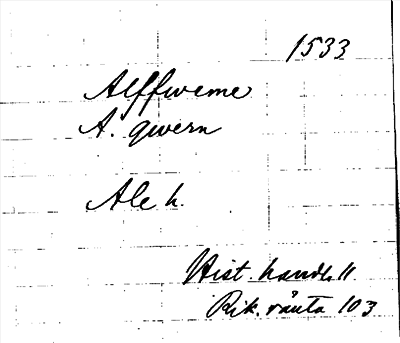 1533
Alffweme
A. qwern
Ale h.
Hist. handl. 11.
Rik. ränta 103